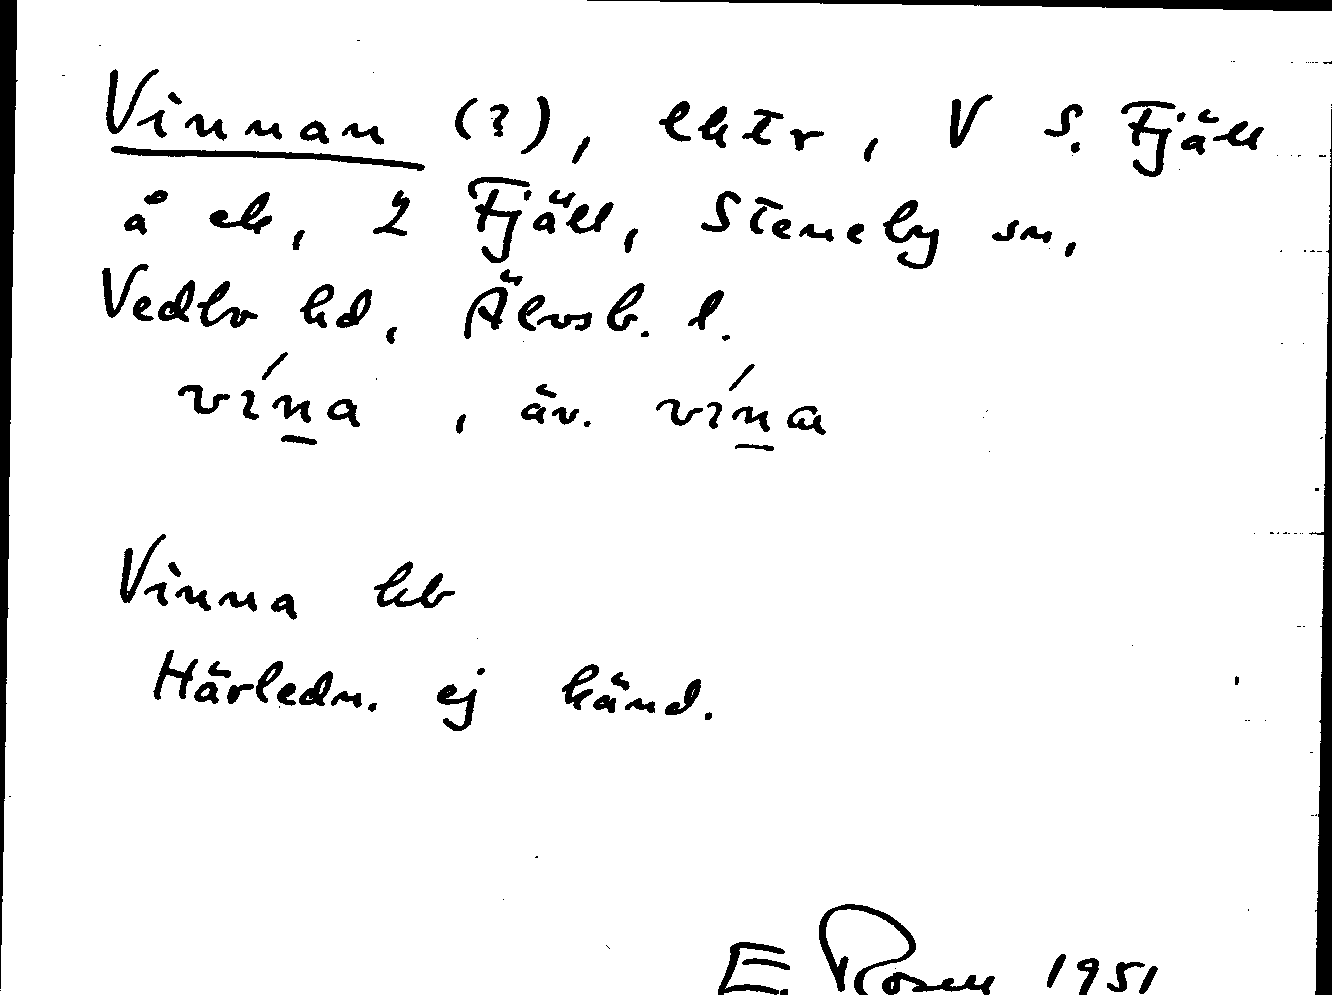 Vinnan (?), lhtr, V S. Fjäll
å ek, 2 Fjäll, Steneby sn,
Vedbo hd, Älvsb. l.
vína, äv. vína
Vinna kb
Härledn. ej känd.
E. Rosen 1951